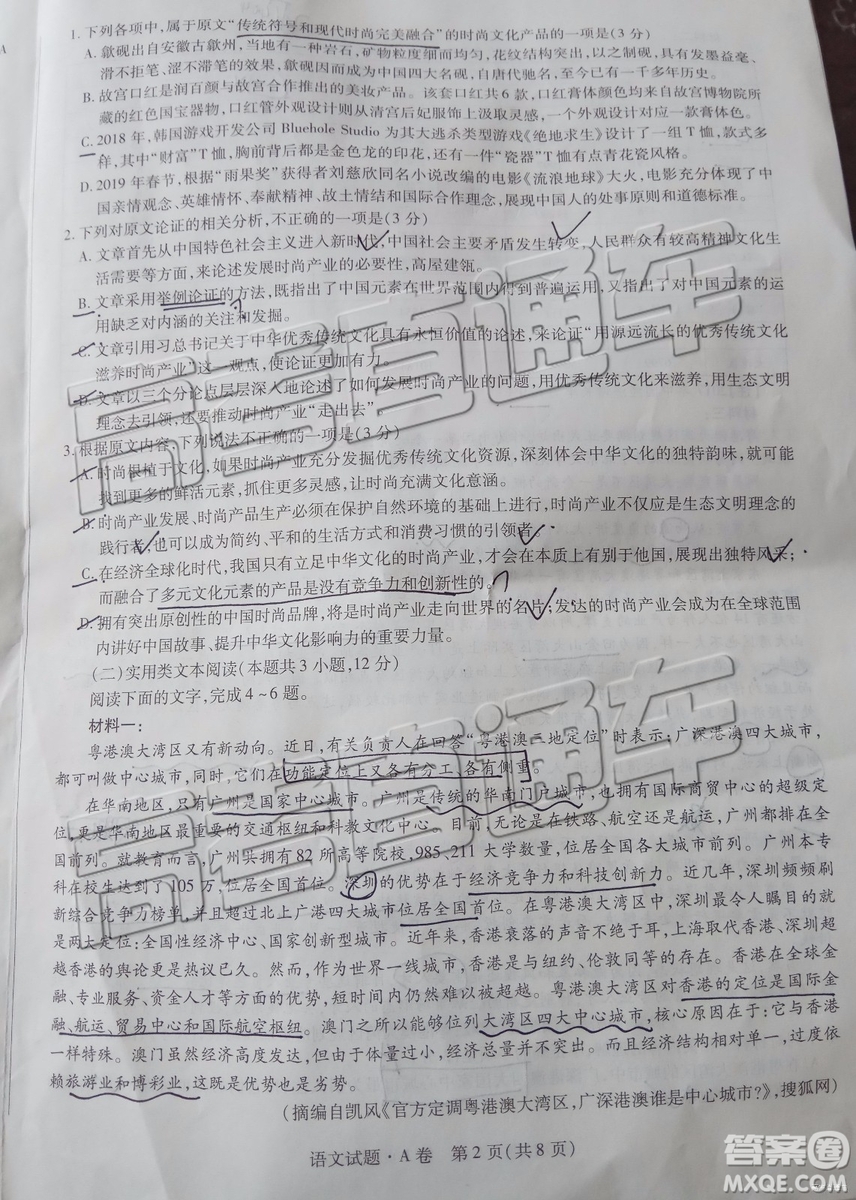 1. 下列各项中,属于原文“传统符号和现代时尚完美融合”的时尚文化产品的一项是(3 分)
A. 歙砚出自安徽古歙州,当地有一种岩石,矿物粒度细而均匀,花纹结构突出,以之制砚,具有发墨益毫、
滑不拒笔、涩不滞笔的效果,歙砚因而成为中国四大名砚,自唐代驰名,至今已有一千多年历史。
B. 故宫口红是润百颜与故宫合作推出的美妆产品。该套口红共 6 款,口红膏体颜色均来自故宫博物院所
藏的红色国宝器物,口红管外观设计则从清宫后妃服饰上汲取灵感,一个外观设计对应一款膏体色。
C. 2018 年,韩国游戏开发公司 Bluehole Studio 为其大逃杀类型游戏《绝地求生》设计了一组 T 恤,款式多
样,其中“财富”T 恤,胸前背后都是金色龙的印花,还有一件“瓷器”T 恤有点青花瓷风格。
D. 2019 年春节,根据“雨果奖”获得者刘慈欣同名小说改编的电影《流浪地球》大火,电影充分体现了中
国亲情观念、英雄情怀、奉献精神、故土情结和国际合作理念,展现中国人的处事原则和道德标准。
2. 下列对原文论证的相关分析,不正确的一项是(3 分)
A. 文章首先从中国特色社会主义进入新时代,中国社会主要矛盾发生转变,人民群众有较高精神文化生
活需要等方面,来论述发展时尚产业的必要性,高屋建瓴。
B. 文章采用举例论证的方法,既指出了中国元素在世界范围内得到普遍运用,又指出了对中国元素的运
用缺乏对内涵的关注和发掘。
C. 文章引用习总书记关于中华优秀传统文化具有永恒价值的论述,来论证“用源远流长的优秀传统文化
滋养时尚产业”这一观点,使论证更加有力。
D. 文章以三个分论点层层深入地论述了如何发展时尚产业的问题,用优秀传统文化来滋养,用生态文明
理念去引领,还要推动时尚产业“走出去”。
3. 根据原文内容,下列说法不正确的一项是(3 分)
A. 时尚根植于文化,如果时尚产业充分发掘优秀传统文化资源,深刻体会中华文化的独特韵味,就可能
找到更多的鲜活元素,抓住更多灵感,让时尚充满文化意涵。
B. 时尚产业发展、时尚产品生产必须在保护自然环境的基础上进行,时尚产业不仅应是生态文明理念的
践行者,也可以成为简约、平和的生活方式和消费习惯的引领者。
C. 在经济全球化时代,我国只有立足中华文化的时尚产业,才会在本质上有别于他国,展现出独特风采;
而融合了多元文化元素的产品是没有竞争力和创新性的。
D. 拥有突出原创性的中国时尚品牌,将是时尚产业走向世界的名片;发达的时尚产业会成为在全球范围
内讲好中国故事、提升中华文化影响力的重要力量。
(二)实用类文本阅读(本题共 3 小题,12 分)
阅读下面的文字,完成 4~6 题。
材料一:
粤港澳大湾区又有新动向。近日,有关负责人在回答“粤港澳三地定位”时表示:广深港澳四大城市,
都可叫做中心城市,同时,它们在功能定位上又各有分工,各有侧重。
在华南地区,只有广州是国家中心城市。广州是传统的华南门户城市,也拥有国际商贸中心的超级定
位,更是华南地区最重要的交通枢纽和科教文化中心。目前,无论是在铁路、航空还是航运,广州都排在全
国前列。就教育而言,广州共拥有 82 所高等院校,985、211 大学数量,位居全国各大城市前列。广州本专
科在校生达到了 105 万,位居全国首位。深圳的优势在于经济竞争力和科技创新力。近几年,深圳频频刷
新综合竞争力榜单,并且超过北上广港四大城市位居全国首位。在粤港澳大湾区中,深圳最令人瞩目的就
是两大定位:全国性经济中心、国家创新型城市。近年来,香港衰落的声音不绝于耳,上海取代香港、深圳超
越香港的舆论更是热议已久。然而,作为世界一线城市,香港是与纽约、伦敦同等的存在。香港在全球金
融、专业服务、资金人才等方面的优势,短时间内仍然难以被超越。粤港澳大湾区对香港的定位是国际金
融、航运、贸易中心和国际航空枢纽。澳门之所以能够位列大湾区四大中心城市,核心原因在于:它与香港
一样特殊。澳门虽然经济高度发达,但由于体量过小,经济总量并不突出。而且经济结构相对单一,过度依
赖旅游业和博彩业,这既是优势也是劣势。
(摘编自凯风《官方定调粤港澳大湾区,广深港澳谁是中心城市?》,搜狐网)
语文试题·A 卷 第 2 页(共 8 页)
高考直通车
高考直通车
答案圈
MXQE.COM